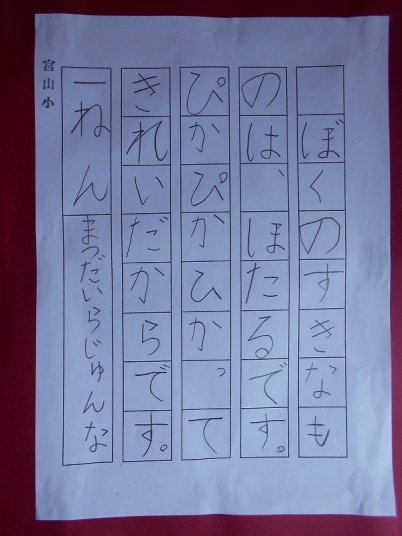 ぼくのすきなも
のは、ほたるです。
ぴかぴかひかって
きれいだからです。
一ねん まつだいらじゅんな
宮山小